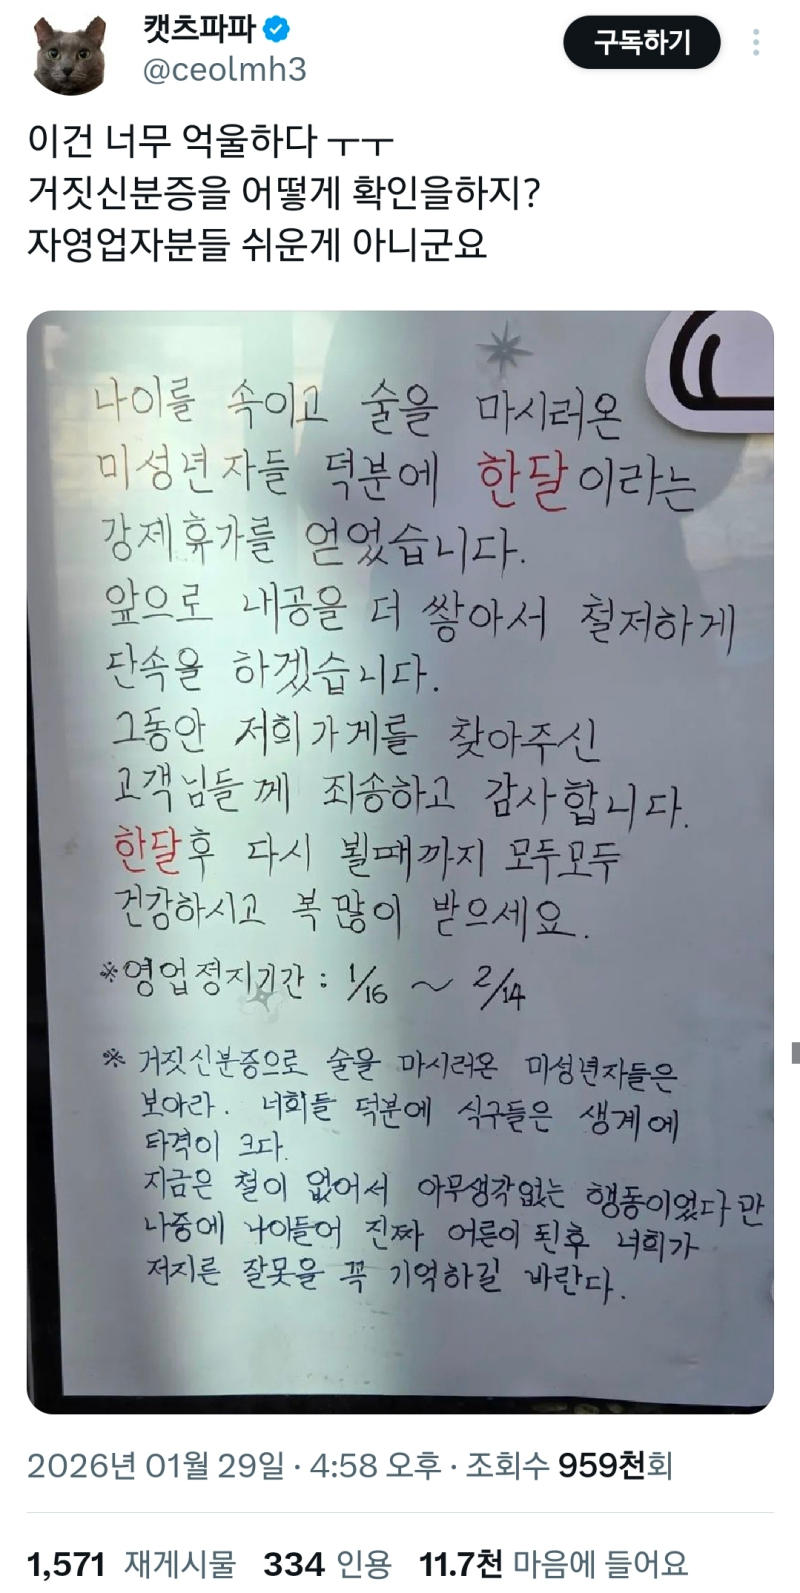 캣츠파파
@ceolmh3
구독하기
이건 너무 억울하다 ㅜㅜ
거짓신분증을 어떻게 확인을하지?
자영업자분들 쉬운게 아니군요
나이를 속이고 술을 마시러온
미성년자들 덕분에 한달이라는
강제휴가를 얻었습니다.
앞으로 내공을 더 쌓아서 철저하게
단속을 하겠습니다.
그동안 저희가게를 찾아주신
고객님들께 죄송하고 감사합니다.
한달후 다시 뵐때까지 모두모두
건강하시고 복 많이 받으세요.
※영업정지기간 : 1/16 ~ 2/14
※ 거짓신분증으로 술을 마시러온 미성년자들은
보아라. 너희들 덕분에 식구들은 생계에
타격이 크다.
지금은 철이 없어서 아무생각없는 행동이었다만
나중에 나이들어 진짜 어른이 된후 너희가
저지른 잘못을 꼭 기억하길 바란다.
2026년 01월 29일 · 4:58 오후 · 조회수 959천회
1,571 재게시물 334 인용 11.7천 마음에 들어요